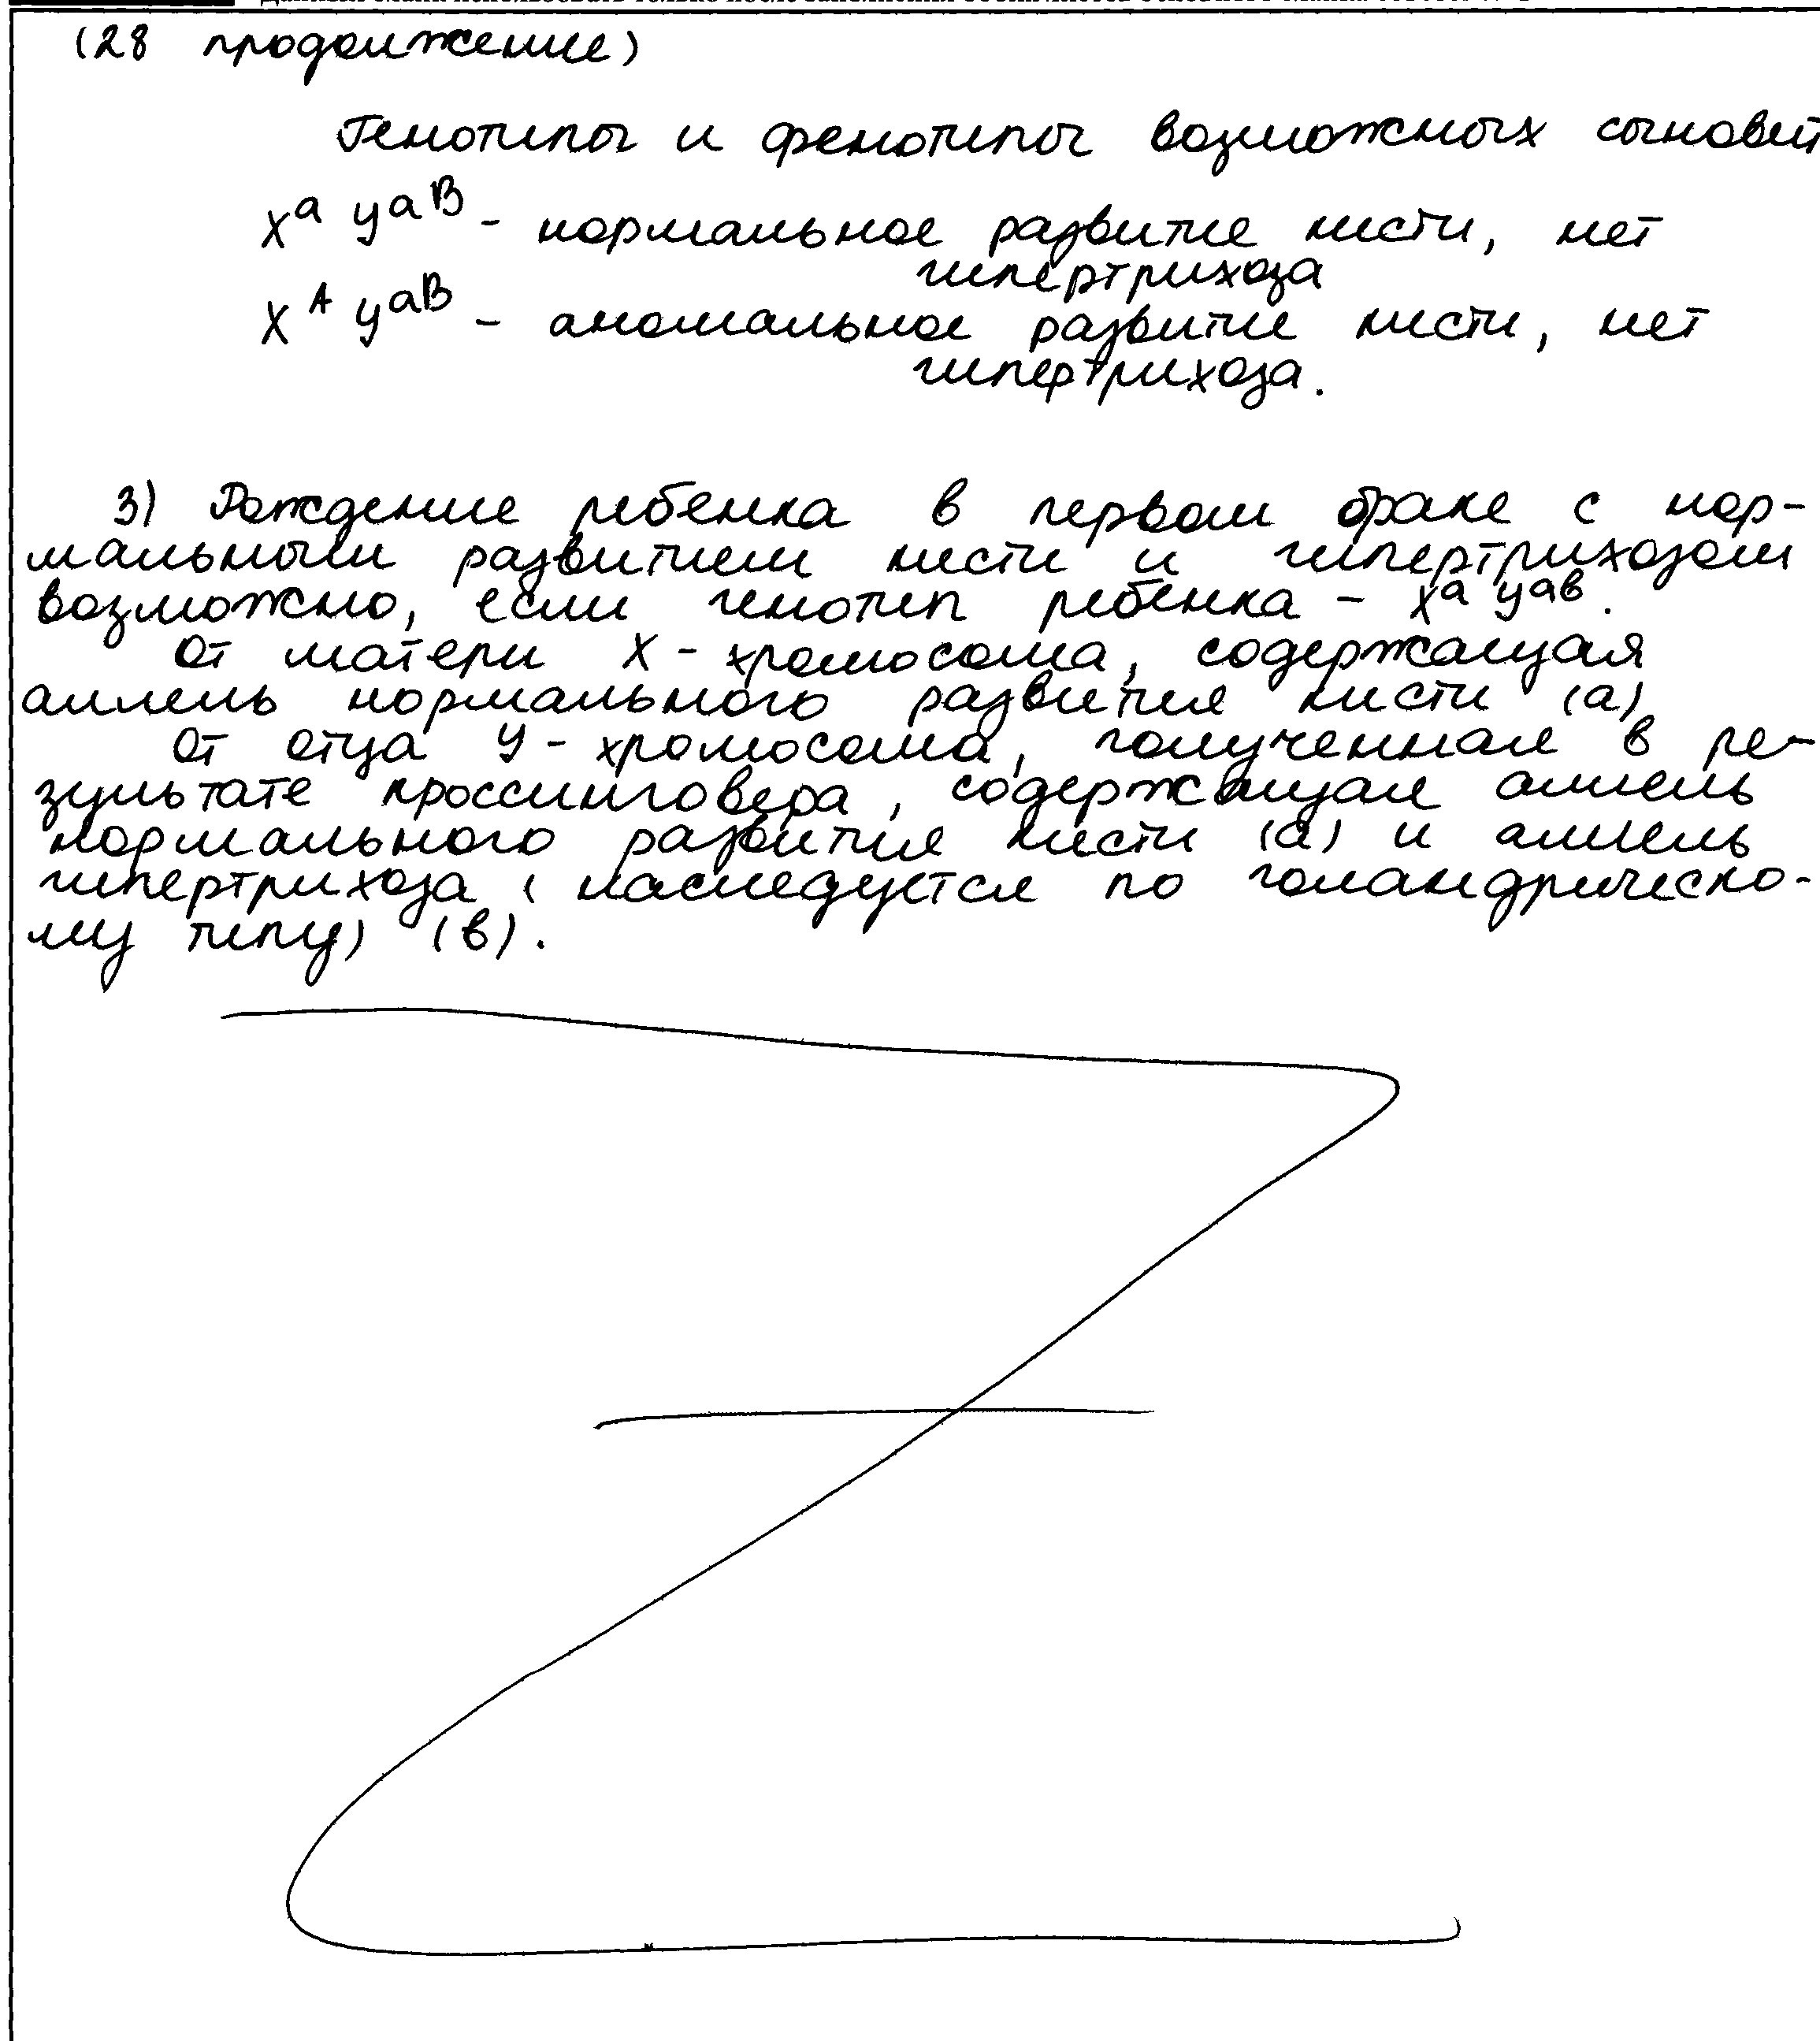 (28 продолжение)
Генотипы и фенотипы возможных сыновей
X^a y^aB - нормальное развитие кисти, нет
гипертрихоза
X^A y^aB - аномальное развитие кисти, нет
гипертрихоза.
3) Рождение ребенка в первом браке с нор-
мальным развитием кисти и гипертрихозом
возможно, если генотип ребенка - X^a y^aв.
От матери X - хромосома, содержащая
аллель нормального развития кисти (a)
От отца У - хромосома, полученная в ре-
зультате кроссинговера, содержащая аллель
нормального развития кисти (a) и аллель
гипертрихоза (наследуется по голандрическо-
му типу) (в).
Z